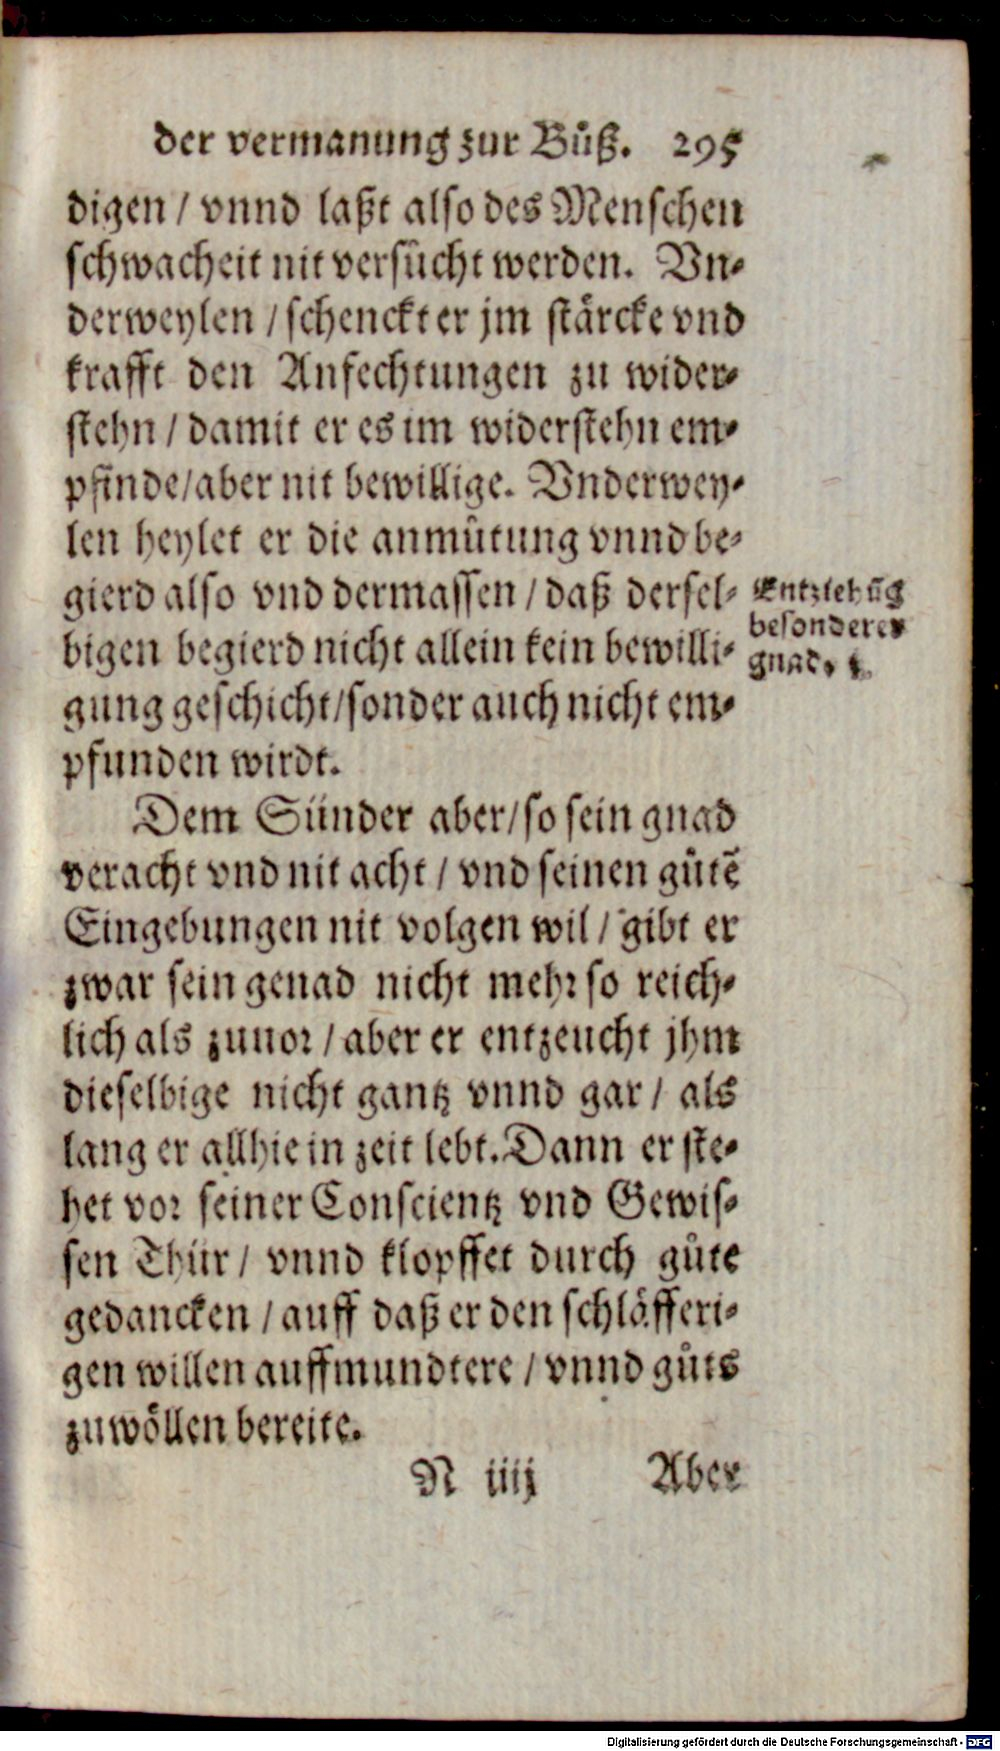 der vermanung zur Bůß. 295
digen / vnnd laßt also des Menschen
schwacheit nit versůcht werden. Vn-
derweylen / schenckt er jm stärcke vnd
krafft den Anfechtungen zu wider-
stehn / damit er es im widerstehn em-
pfinde / aber nit bewillige. Vnderwey-
len heylet er die anmůtung vnnd be-
gierd also vnd dermassen / daß dersel-
bigen begierd nicht allein kein bewilli-
gung geschicht / sonder auch nicht em-
pfunden wirdt.
Entziehūg
besonderer
gnad.
Dem Sünder aber / so sein gnad
veracht vnd nit acht / vnd seinen gůtē
Eingebungen nit volgen wil / gibt er
zwar sein genad nicht mehr so reich-
lich als zuuor / aber er entzeucht jhm
dieselbige nicht gantz vnnd gar / als
lang er allhie in zeit lebt. Dann er ste-
het vor seiner Conscientz vnd Gewis-
sen Thür / vnnd klopffet durch gůte
gedancken / auff daß er den schläfferi-
gen willen auffmundtere / vnnd gůts
zuwöllen bereite.
N iiij Aber
Digitalisierung gefördert durch die Deutsche Forschungsgemeinschaft - DFG